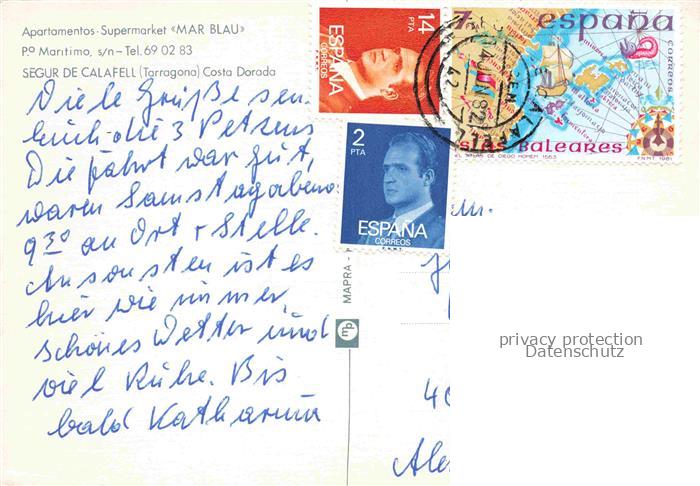 Apartamentos - Supermarket «MAR BLAU»
P.º Marítimo, s/n – Tel. 69 02 83
SEGUR DE CALAFELL (Tarragona) Costa Dorada
Viele Grüße sen-
die 3 Petzens
Die Fahrt war gut,
waren Samstagabend
9³⁰ an Ort + Stelle.
Ansonsten ist es
hier wie immer,
schönes Wetter und
viel Ruhe. Bis
bald Katharina
14
PTA
ESPAÑA
CORREOS
7
españa
correos
islas Baleares
EL ATLAS DE DIEGO HOMEM 1563
F.N.M.T. 1981
2
PTA
ESPAÑA
CORREOS
F.N.M.T.
MAPRA -
mp
em.
40
privacy protection
Datenschutz